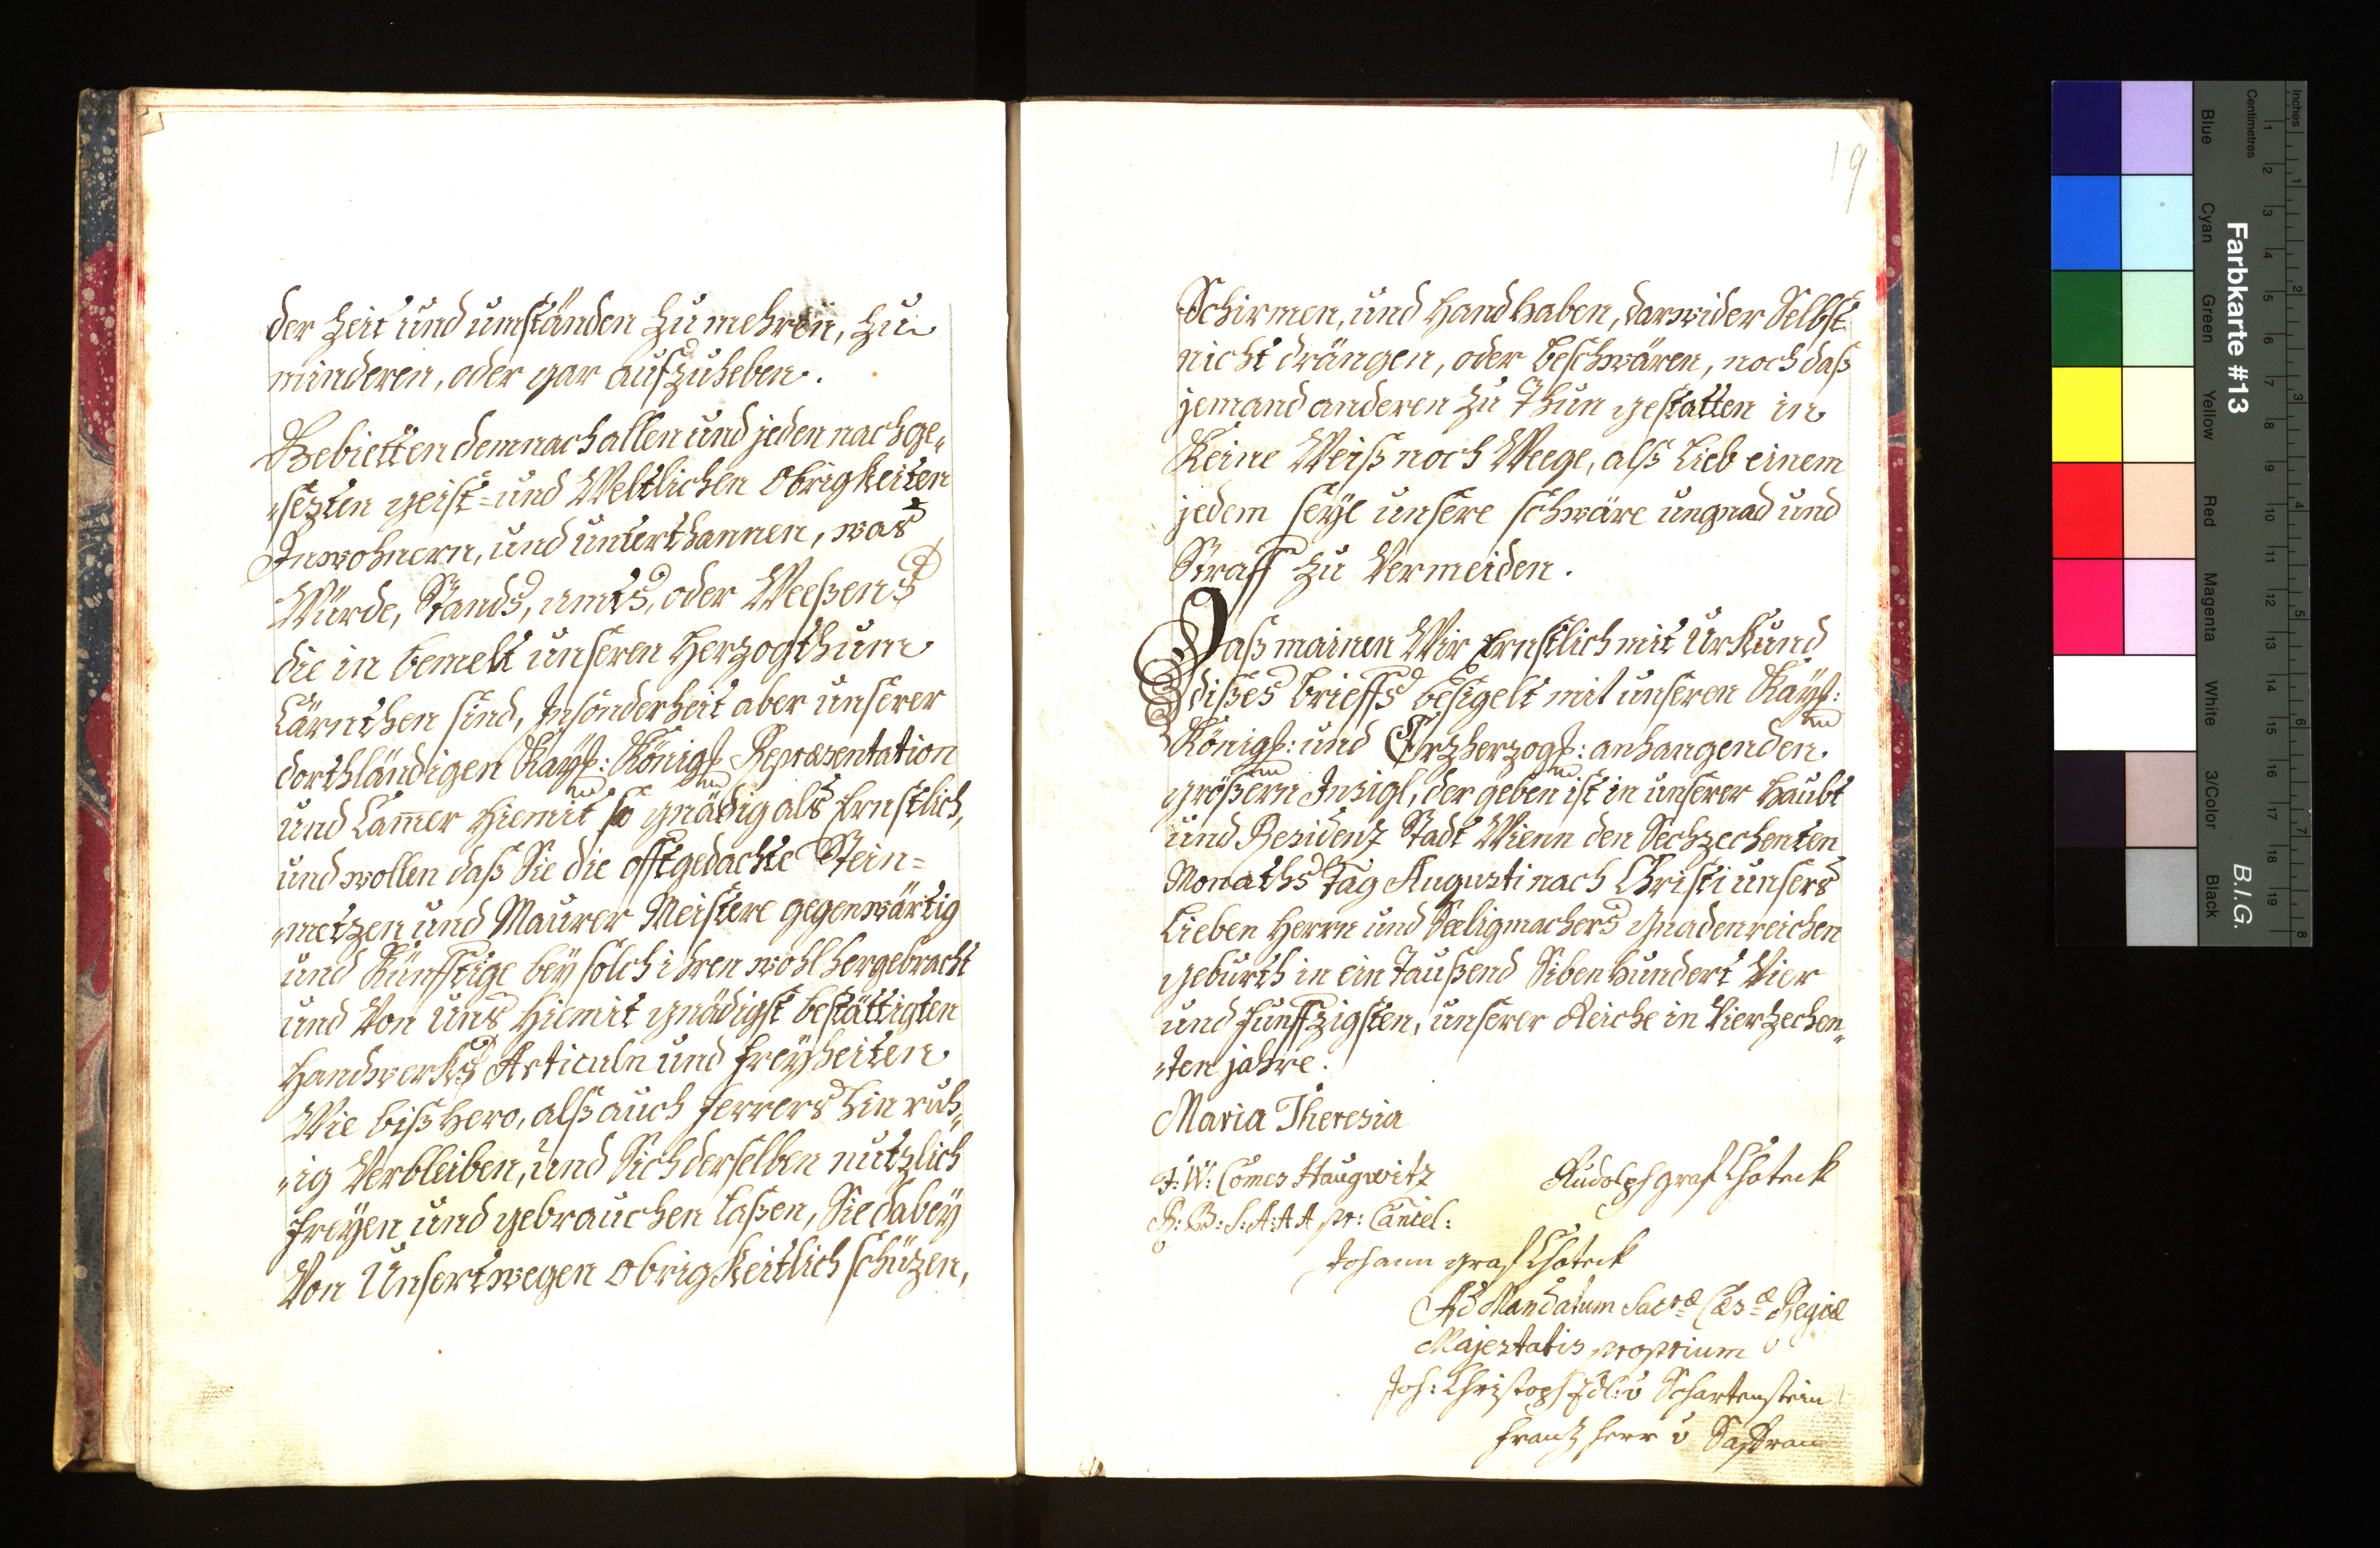 der Zeit und umständen zu mehren, zu
minderen, oder gar aufzuheben.
Gebietten demnach allen und jeden nachge„
„sezten geist=und Weltlichen Obrigkeiten
Inwohnern, und unterthannen, was
Würde, Stands, amts, oder Weeßens
die in bemelt unseren Herzogthum
Cärnthen sind, Insonderheit aber unserer
dorthländigen Kayß: Königß Repræsentation
und Cam̄er hiemit so gnädig als Ernstlich,
und wollen daß Sie die offtgedachte Stein=
„metzen und Maurer Meistere gegenwärtig
und Künfftige bey solch ihren wohl hergebracht
und Von uns hiemit gnädigst bestättigten
Handwerks Articuln und freyheiten
Wie bißhero, alß auch ferrers hin ruh„
„ig Verbleiben, und Sich derselben nutzlich
freyen und gebrauchen laßen, Sie dabey
Von Unsertwegen Obrigkeitlich schützen,
19
Schirmen, und Handhaben, darwider Selbst
nicht drängen, oder beschwären, noch daß
jemand anderen zu Thun gestatten in
Keine Weiß noch Weege, alß Lieb einem
jedem seye unsere schwäre ungnad und
Straff zu Vermeiden.
Daß mainen Wir Ernstlich mit Urkund
dißes brieffs besigelt mit unseren Kayß:
Königß: und Erzherzogß: anhangenden
größern Insigl, der geben ist in unserer Haubt
und Residenz Stadt Wienn den Sechzechenten
Monaths Tag Augusti nach Christi unsers
Lieben Herrn und Seeligmachers Gnadenreichen
geburth in ein Taußend Sibenhundert Vier
und funffzigsten, unserer Reiche in Vierzechen„
„ten jahre.
Maria Theresia
F: W: Comes Haugwitz Rudolph graf Choteck
R: B: S: A: A A pr: Cancel:
Johann graf Choteck
Ad Mandatum Sacræ Cæsæ Regiæ
Majestatis proprium
Joh: Christoph Edl: v Schartenstein
Frantz Herr v
Farbkarte #13
B.I.G.
Inches 1 2 3 4 5 6 7 8
Centimetres 1 2 3 4 5 6 7 8 9 10 11 12 13 14 15 16 17 18 19
Blue Cyan Green Yellow Red Magenta White 3/Color Black